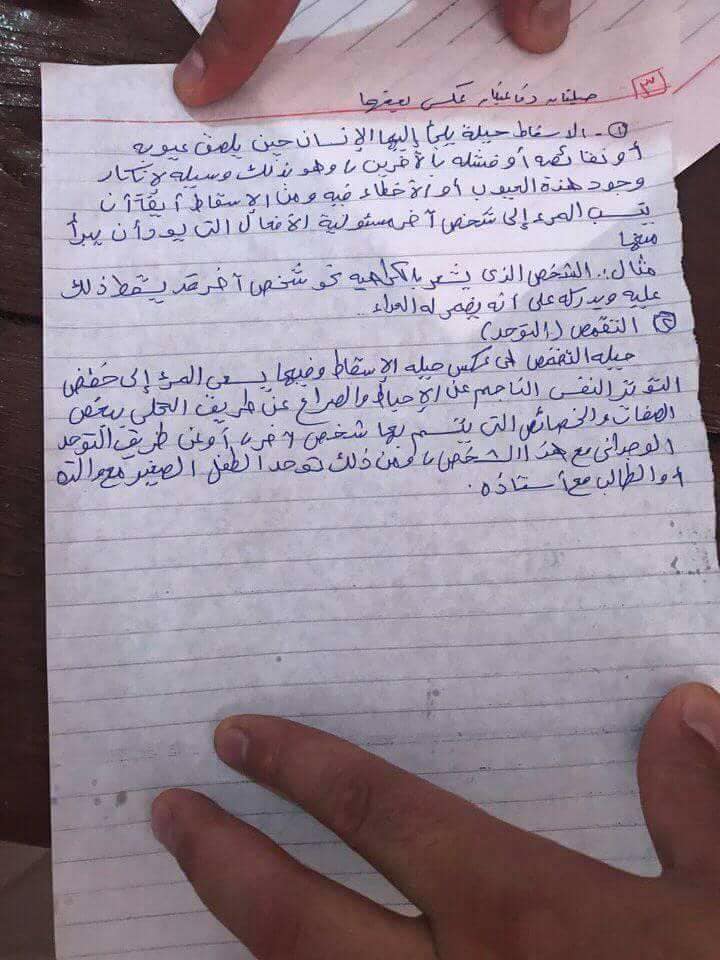 ٣ حيلتان دفاعيتان عكس بعضها
① - الاسقاط حيلة يلجأ إليها الإنسان حين يلصق عيوبه
أو نقائصه أو فشله بالآخرين، وهو بذلك وسيلة لإنكار
وجود هذة العيوب أو الأخطاء فيه ومن الإسقاط أيضًا أن
ينسب المرء إلى شخص آخر مسئولية الأفعال التى يود أن يبرأ
منها
مثال:. الشخص الذى يشعر بالكراهيه نحو شخص آخر قد يسقط ذلك
عليه ويدركه على أنه يضمر له العداء..
② التقمص (التوحد)
حيله التقمص هى عكس حيله الاسقاط وفيها يسعى المرء إلى خفض
التوتر النفسى الناجم عن الإحباط والصراع عن طريق التحلى ببعض
الصفات والخصائص التى يتسم بها شخص آخر، أو عن طريق التوحد
الوجدانى مع هذا الشخص، ومن ذلك توحد الطفل الصغير مع والده
أو الطالب مع أستاذه.